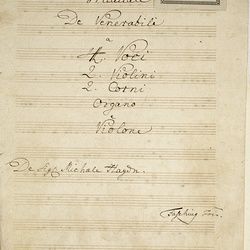 De Venerabili
a
4. Voci
2. Violini
2. Corni
Organo
e
Violone
De Sig. Michale Haydn.